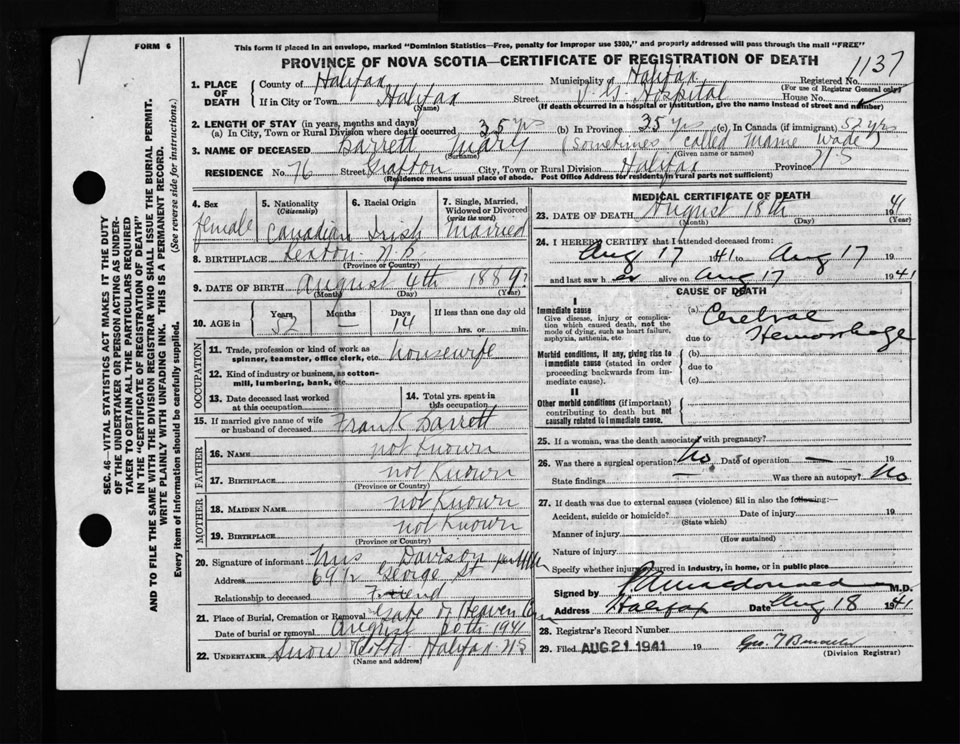 FORM 6
This form if placed in an envelope, marked "Dominion Statistics—Free, penalty for improper use $300," and properly addressed will pass through the mail "FREE"
PROVINCE OF NOVA SCOTIA—CERTIFICATE OF REGISTRATION OF DEATH
1137
Registered No.
(For use of Registrar General only)
1. PLACE OF DEATH
County of Halifax
Municipality of Halifax
If in City or Town Halifax Street V. G. Hospital House No.
(Name)
(If death occurred in a hospital or institution, give the name instead of street and number)
2. LENGTH OF STAY (in years, months and days)
(a) In City, Town or Rural Division where death occurred 35 yrs (b) In Province 35 yrs (c) In Canada (if immigrant) 52 yrs
3. NAME OF DECEASED Barrett Mary (Sometimes called Mame Wade)
(Surname) (Given name or names)
RESIDENCE No. 76 Street Grafton City, Town or Rural Division Halifax Province N S
(Residence means usual place of abode. Post Office Address for residents in rural parts not sufficient)
4. Sex female
5. Nationality (Citizenship) Canadian
6. Racial Origin Irish
7. Single, Married, Widowed or Divorced (write the word) Married
8. BIRTHPLACE N B
(Province or Country)
9. DATE OF BIRTH August 4th 1889?
(Month) (Day) (Year)
10. AGE in Years 52 Months — Days 14 If less than one day old
hrs. or min.
OCCUPATION
11. Trade, profession or kind of work as spinner, teamster, office clerk, etc. housewife
12. Kind of industry or business, as cotton-mill, lumbering, bank, etc.
13. Date deceased last worked at this occupation
14. Total yrs. spent in this occupation
15. If married give name of wife or husband of deceased Frank Barrett
FATHER
16. NAME not known
17. BIRTHPLACE not known
(Province or Country)
MOTHER
18. MAIDEN NAME not known
19. BIRTHPLACE not known
(Province or Country)
20. Signature of informant Mrs Davison
Address 69½ George St
Relationship to deceased Friend
21. Place of Burial, Cremation or Removal Gate of Heaven Cem
Date of burial or removal August 20th 1941
22. UNDERTAKER Snow Halifax N S
(Name and address)
MEDICAL CERTIFICATE OF DEATH
23. DATE OF DEATH August 18th 1941
(Month) (Day) (Year)
24. I HEREBY CERTIFY that I attended deceased from:
Aug 17 1941 to Aug 17 19
and last saw h alive on Aug 17 1941
CAUSE OF DEATH
I
Immediate cause
Give disease, injury or complication which caused death, not the mode of dying, such as heart failure, asphyxia, asthenia, etc.
(a) Cerebral
due to Hemorrhage
Morbid conditions, if any, giving rise to immediate cause (stated in order proceeding backwards from immediate cause).
(b)
due to
(c)
II
Other morbid conditions (if important) contributing to death but not causally related to immediate cause.
25. If a woman, was the death associated with pregnancy?
26. Was there a surgical operation? No Date of operation — 19
State findings Was there an autopsy? No
27. If death was due to external causes (violence) fill in also the following:—
Accident, suicide or homicide? Date of injury 19
(State which)
Manner of injury
(How sustained)
Nature of injury
Specify whether injury occurred in industry, in home, or in public place
Signed by Macdonald M.D.
Address Halifax Date Aug 18 1941
28. Registrar's Record Number
29. Filed AUG 21 1941 19 Geo. T
(Division Registrar)
SEC. 46—VITAL STATISTICS ACT MAKES IT THE DUTY
OF THE UNDERTAKER OR PERSON ACTING AS UNDER-
TAKER TO OBTAIN ALL THE PARTICULARS REQUIRED
IN THE "CERTIFICATE OF REGISTRATION OF DEATH"
AND TO FILE THE SAME WITH THE DIVISION REGISTRAR WHO SHALL ISSUE THE BURIAL PERMIT.
WRITE PLAINLY WITH UNFADING INK. THIS IS A PERMANENT RECORD.
Every item of information should be carefully supplied. (See reverse side for instructions.)